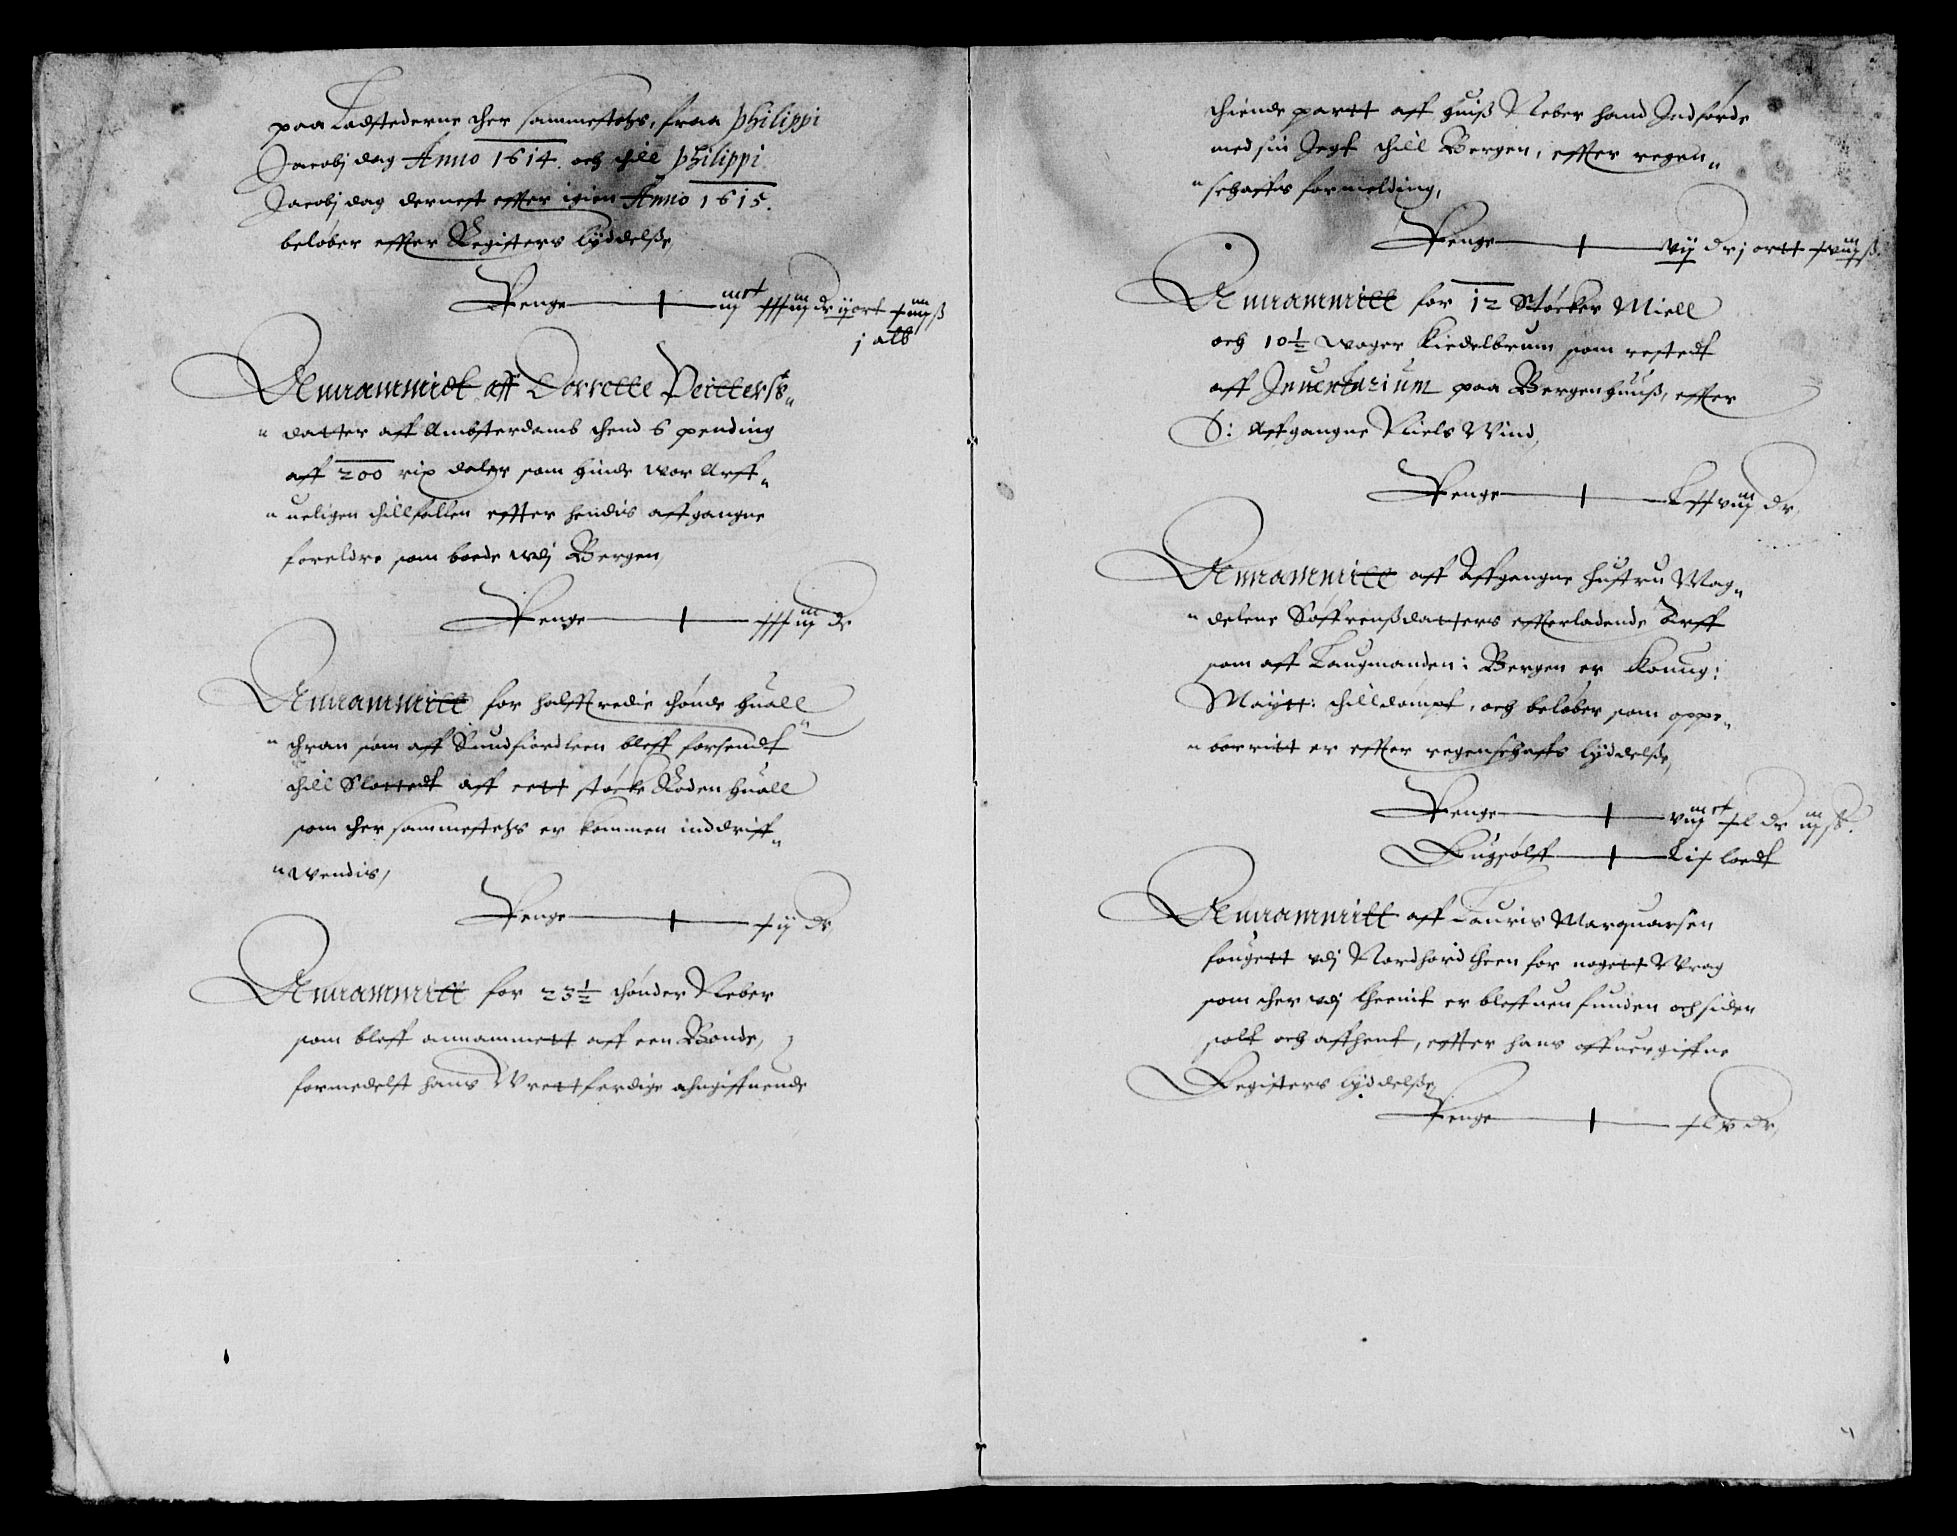 paa Ladstederne ther sammestetzs, fraa Philippi
Jacobj dag Anno 1614. och thill Philippi
Jacobj dag dernest effter igien Anno 1615.
beløber effter Registers lÿddelße,
Penge
j alb
Annammidt aff Dorrette Peitters-
datter aff Ambsterdamb thend 6 pending
aff 200 rix daler som hinde wor Arff-
ueligen thillfallen effter hendis affgangne
foreldre som boede wdj Bergen,
Penge
Annammitt for halfftredie thønde huall
thran som aff Sundfiord leen bleff forsendt
thill Slottedt aff eett støcke Roden huall
som ther sammestetzs er kommen inddriff-
wendis,
Penge xij dr,
Annammitt for 23½ thønder Neber
som bleff annammett aff een Bonde,
formedelst hans Wrettferdige ahngiffuende
thiende partt aff huiß Neber hand Indførde
med sin Jegt thill Bergen, effter regen-
schaffs formelding,
Penge vij dr j ortt
Annammitt for 12 Støcker Miell
och 10½ woger Kiedelbrum som restedt
aff Inuentarium paa Bergenhuuß, effter
S: Affgangne Niels Wind,
Penge
Annammitt aff Affgangne hustru Mag-
delene Søffrenßdatters effterladende Arff
som aff Laugmanden i Bergen er Konng:
Maÿtt: thilldømpt, och beløber som oppe-
borritt er effter regenschaffs lÿddelße,
Penge
Bugsølff Lix loedt
Annammitt aff Lauris Marquarsen
fougett vdj Nordhord lheen for nogett Wrag
som ther vdj lheenit er bleffuen funden och siden
solt och affhent, effter hans offuergiffne
Registers lÿddelße,
Penge xlv dr,